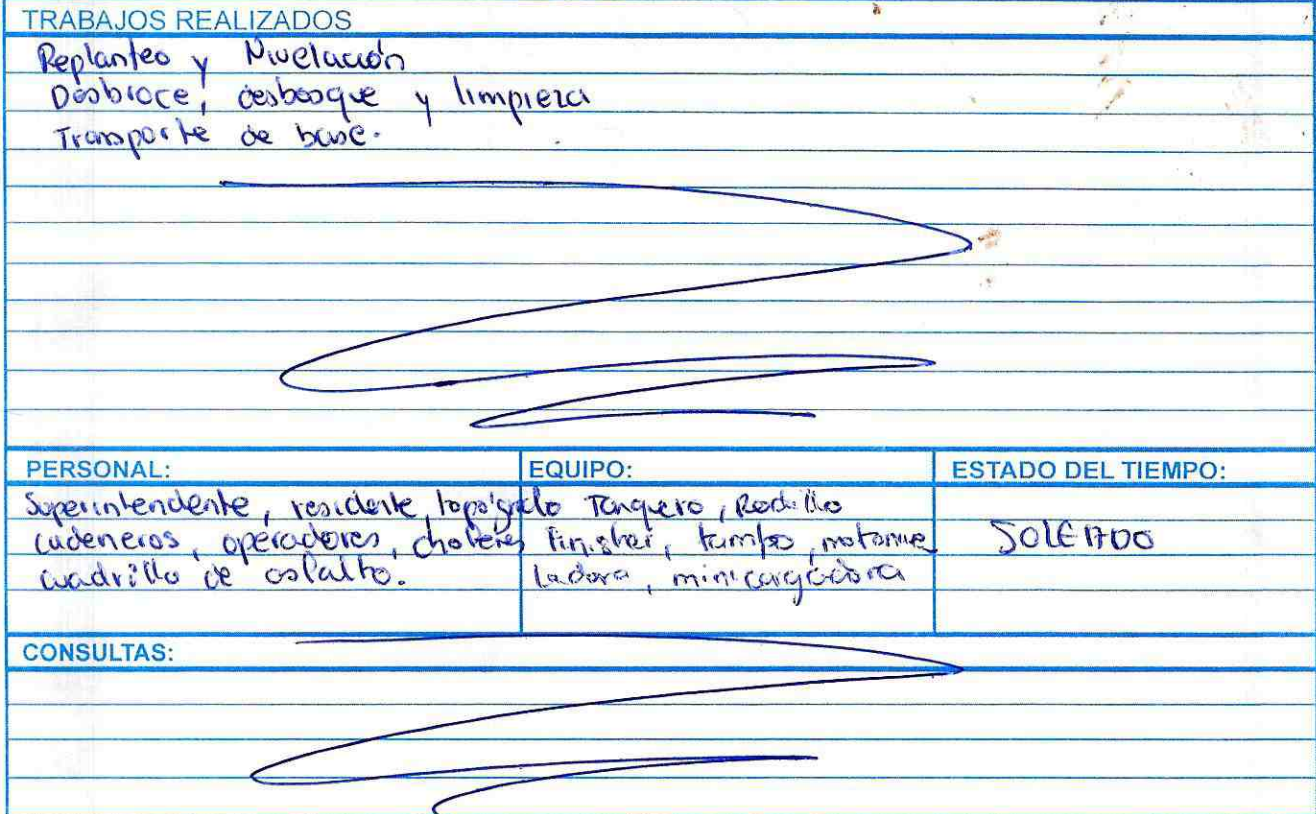 TRABAJOS REALIZADOS
Replanteo y Nivelación
Desbroce, desbosque y limpieza
Transporte de base.
PERSONAL:
Superintendente, residente, topógrafo
cadeneros, operadores, choferes
cuadrilla de asfalto.
EQUIPO:
Tanquero, Rodillo
Finisher, tambo, motonive
ladora, minicargadora
ESTADO DEL TIEMPO:
SOLEADO
CONSULTAS: